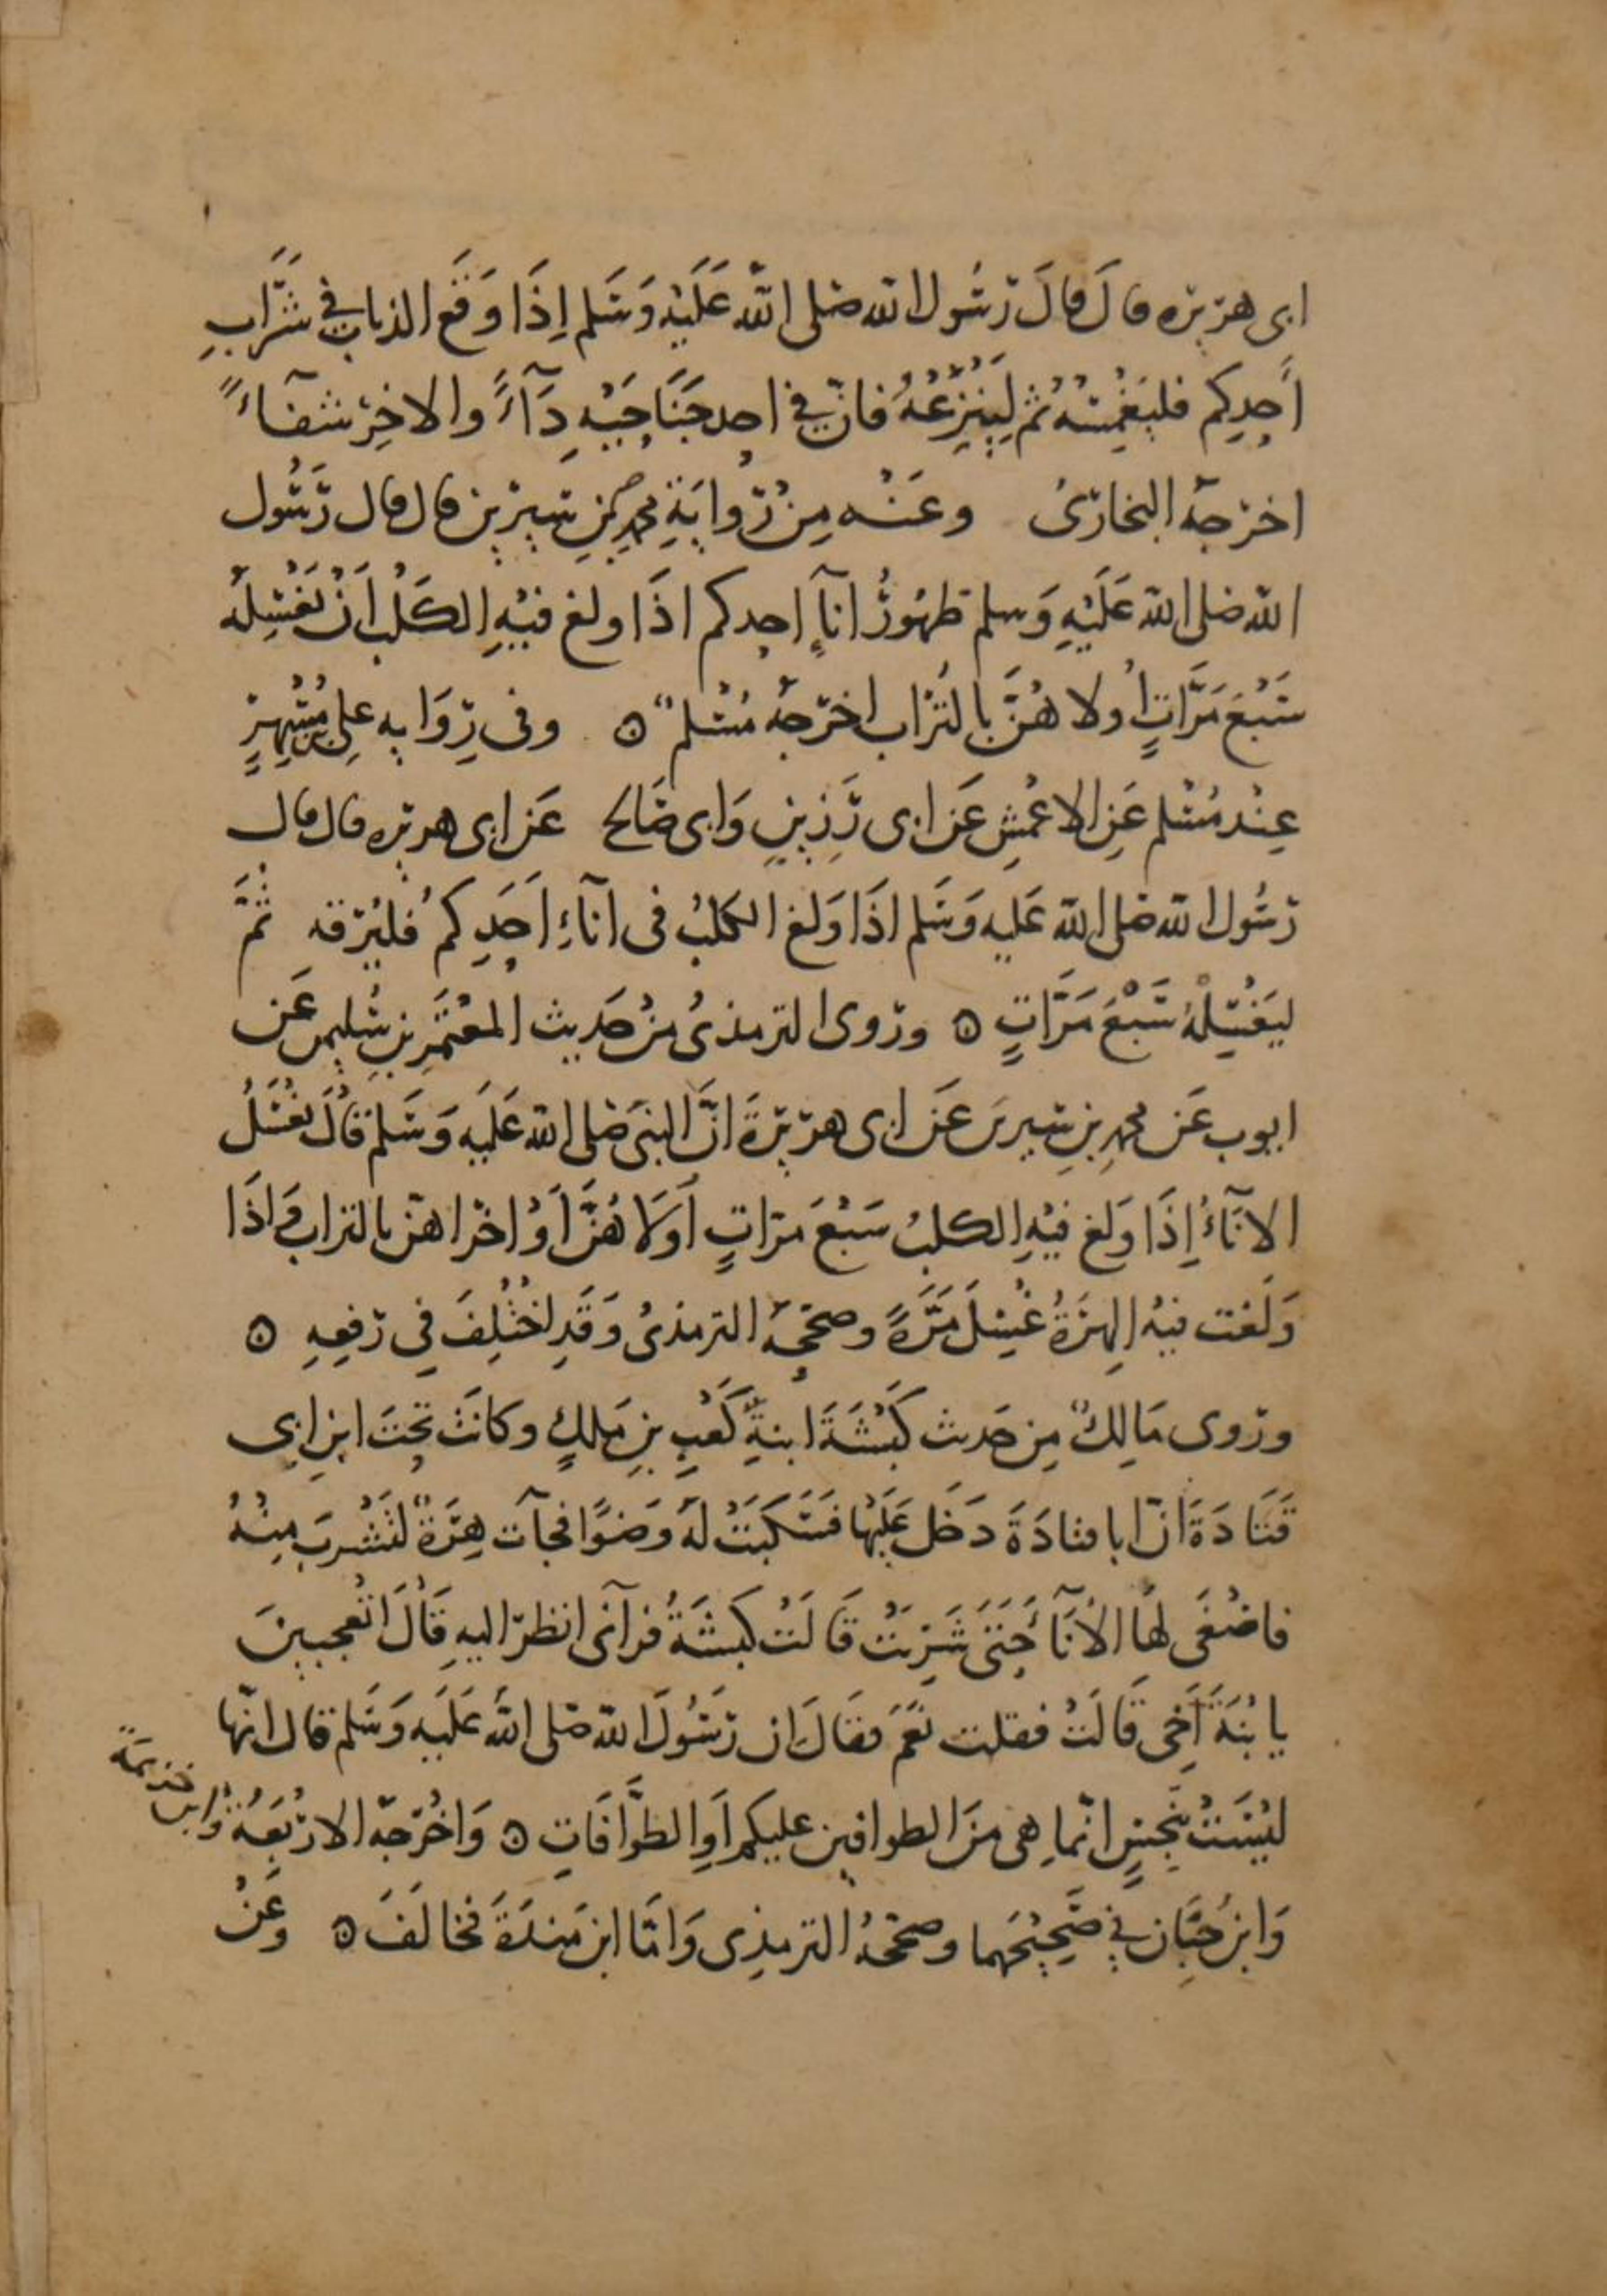 ابى هريره قال قال رَسُول الله صَلى اللّه عَلَيْه وَسَلم اِذَا وَقَع الذباب فى شَرَابِ
اَحدِكم فليَغْمِسْه ثم لِيَنْزِعْهُ فانّ فى احد جَنَاحَيْهِ دَآءً والاخِرْ شفآءً
اخرَجهُ البخارىُ وعَنْه مِنْ رِوايَةِ محمدِ بنِ سيرين قال قال رَسُول
اللّه صَلى اللّه عَلَيْهِ وَسلم طهُورُ انآءِ احدكم اذَا ولغ فيْهِ الكَلْبُ اَنْ يَغْسِلهُ
سَبْعَ مَرَّاتٍ اُولاهُنَّ بالتُرَاب اخرَجهُ مُسْلم ۝ وفى رِوَايه عَلِى بن مُسْهِرٍ
عِنْد مُسْلم عَنِ الاعْمَشِ عَن ابى رَزِينٍ وَابى صَالح عَن ابى هريره قال قال
رَسُول اللّه صَلى اللّه عَليه وَسَلم اذَا وَلغ الكلبُ فى انآءِ اَحَدِكمُ فليُرقه ثُمَّ
ليَغْسِلْهُ سَبْعَ مَرَّاتٍ ۝ ورَوى الترمذىُ منْ حَديث المُعْتَمرِ بنِ سُليمن عَن
ايوب عَن محمدِ بنِ سيرين عَن ابى هريْرَةَ انَّ النبىَ صَلى اللّه عَلَيه وَسَلم قالَ يغْسَلُ
الانآءُ اِذَا وَلغ فيْهِ الكلبُ سَبْعَ مَرّاتٍ اُولَاهُنَّ اَوْ اخرَاهنّ بالتراب وَاذَا
وَلَغت فيْه الهِرَةُ غُسِلَ مَرَّةً وصحّحهُ الترمذىُ وَقَدِ اخْتُلِفَ فى رَفعِهِ ۝
ورَوى مَالِكٌ مِن حَديث كَبْشَةَ ابنةِ كَعْبِ بنِ مَالكٍ وكانَتْ تحْتَ ابنِ ابِى
قَتَادَةَ انّ ابا قتادَةَ دَخَل عَلَيْهَا فسَكَبَتْ لهُ وَضوًا فجآت هِرَةٌ لتَشْربَ مِنْهُ
فاصْغَى لهَا الاِنَآ حَتَى شَرِبَتْ قَالَتْ كَبشَةُ فرآنى انظرُ اليهِ قَالَ اتعْجبينَ
يا بْنَةَ اَخِى قَالَتْ فقلت نعَمْ فقَالَ ان رَسُولَ اللّه صَلى اللّه عَلَيه وَسَلم قال انّها
ليْسَتْ بنَجسٍ انّما هى منَ الطوافين عليكم اَوِ الطوَّافَاتِ ۝ وَاخْرَجهُ الارْبَعَةُ وابن خزيمَةَ
وَابن حِبَّان فى صَحِيْحَيْهما وصحّحهُ الترمذِى وَامّا ابن مَندَةَ فخَالَفَ ۝ وعَنْ